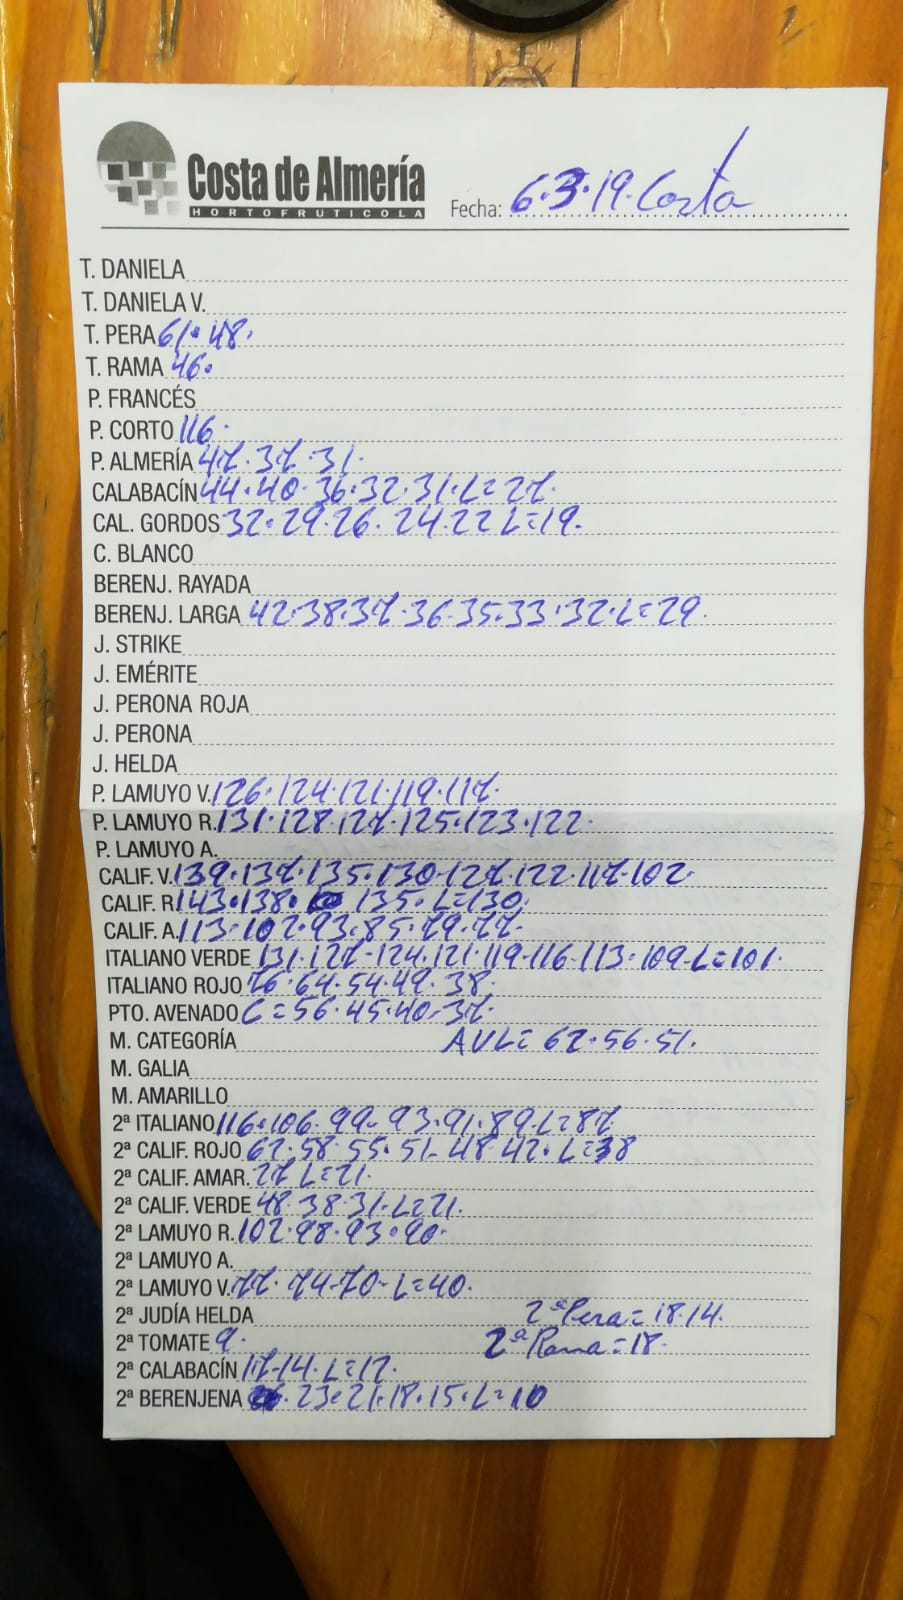 Costa de Almería
HORTOFRUTICOLA
Fecha: 6.3.19. Costa
T. DANIELA
T. DANIELA V.
T. PERA 61. 48.
T. RAMA 46.
P. FRANCÉS
P. CORTO 116.
P. ALMERÍA 47. 37. 31.
CALABACÍN 44. 40. 36. 32. 31. L=27.
CAL. GORDOS 32. 29. 26. 24. 22 L=19.
C. BLANCO
BERENJ. RAYADA
BERENJ. LARGA 42. 38. 37. 36. 35. 33. 32. L=29.
J. STRIKE
J. EMÉRITE
J. PERONA ROJA
J. PERONA
J. HELDA
P. LAMUYO V. 126. 124. 121. 119. 117.
P. LAMUYO R. 131. 128. 127. 125. 123. 122.
P. LAMUYO A.
CALIF. V. 139. 137. 135. 130. 127. 122. 117. 102.
CALIF. R 143. 138. 135. L=130.
CALIF. A. 113. 102. 93. 85. 79. 77.
ITALIANO VERDE 131. 127. 124. 121. 119. 116. 113. 109. L=101.
ITALIANO ROJO 76. 64. 54. 49. 38.
PTO. AVENADO C=56. 45. 40. 37.
M. CATEGORÍA AVL= 62. 56. 51.
M. GALIA
M. AMARILLO
2ª ITALIANO 116. 106. 99. 93. 91. 89. L=87
2ª CALIF. ROJO 62. 58. 55. 51. 48. 42. L=38
2ª CALIF. AMAR. 27 L=21.
2ª CALIF. VERDE 48. 38. 31. L=21.
2ª LAMUYO R. 102. 98. 93. 90.
2ª LAMUYO A.
2ª LAMUYO V. 77. 74. 70. L=40.
2ª JUDÍA HELDA 2ª Pera=18. 14.
2ª TOMATE 9. 2ª Rama=18.
2ª CALABACÍN 17. 14. L=12.
2ª BERENJENA 23. 21. 18. 15. L=10